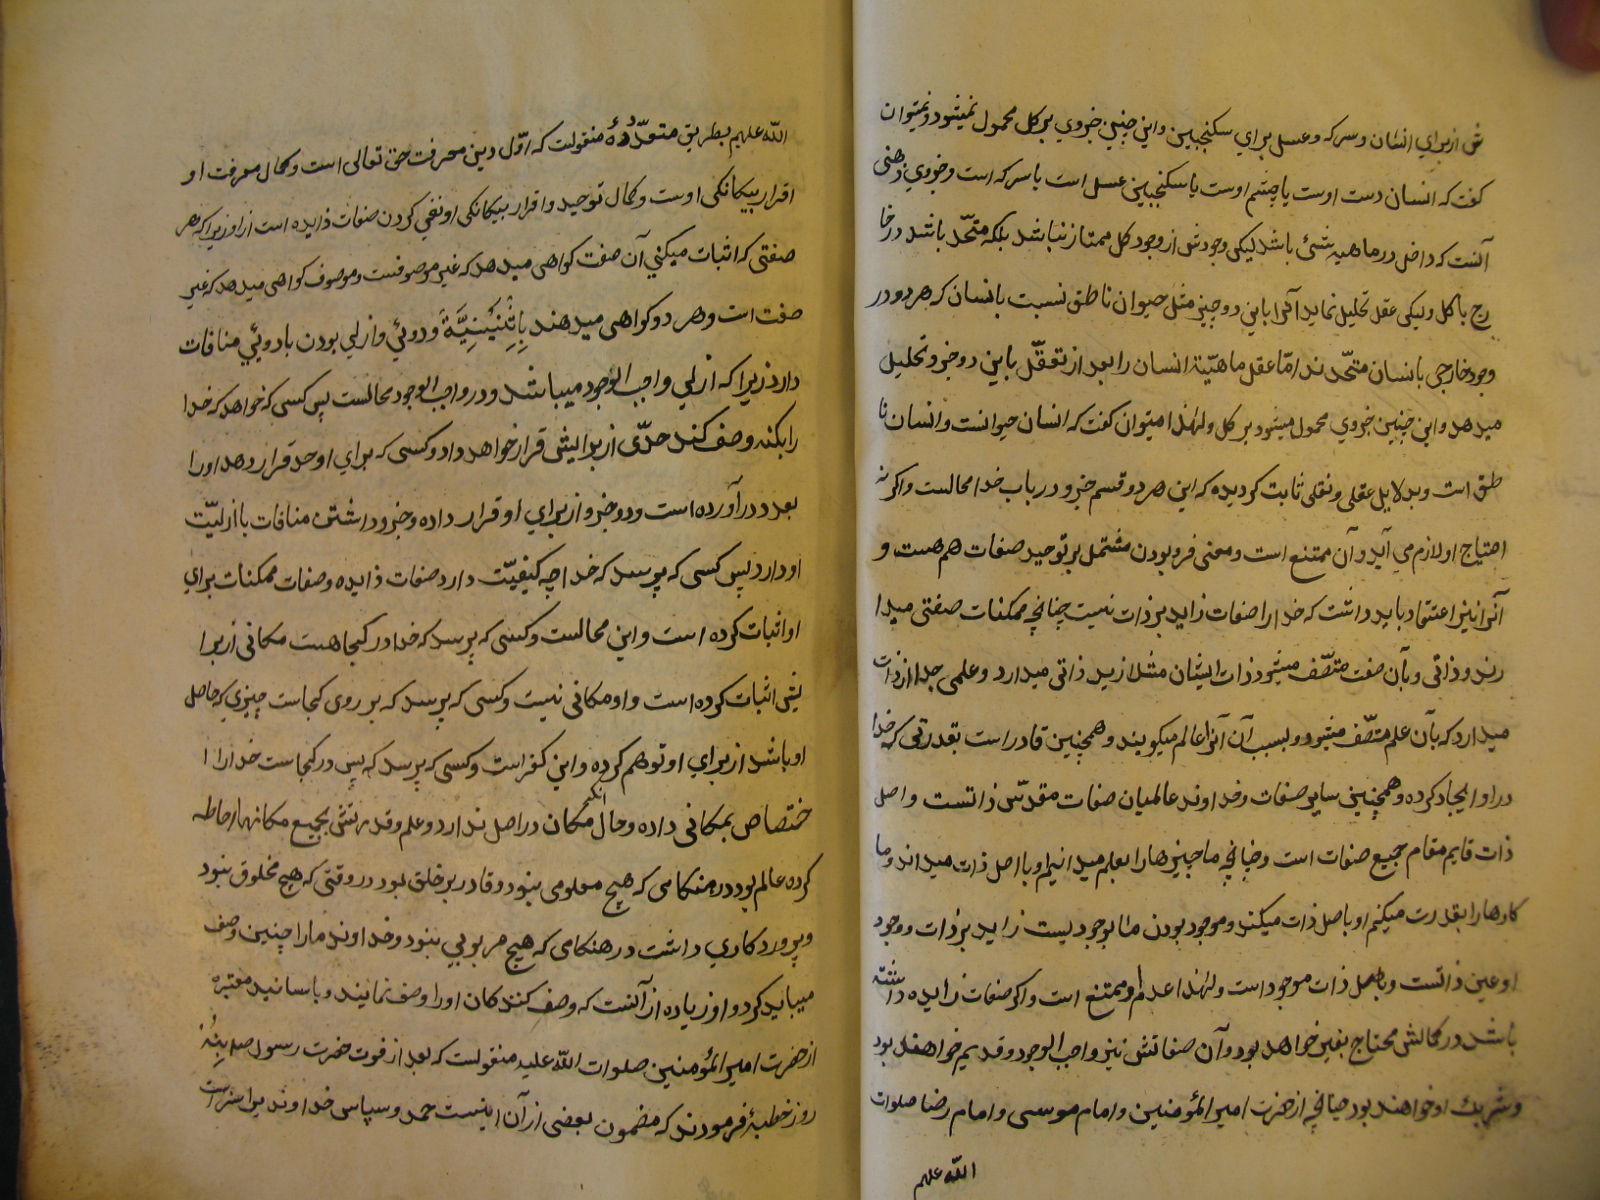 ش از برای انسان و سرکه و عسل برای سکنجبین و این چنین جزوی بر کل محمول نمیشود و نمیتوان
کفت که انسان دست اوست یا چشم اوست یا سکنجبین عسل است یا سرکه است و جزوی ذهنی
آنست که داخل در ماهیه شئ باشد لیکی وجودش از وجود کل ممتاز نباشد بلکه متحّد باشد در خا
رج با کل و لیکی عقل تحلیل نماید آنرا باین دو چیز مثل حیوان ناطق نسبت بانسان که هر دو در
وجود خارجی بانسان متحّدند امّا عقل ماهیّة انسان را بعد از تعقّل باین دو جزو تحلیل
میدهد و این چنین جزوی محمول میشود بر کل و لهٰذا میتوان کفت که انسان حیوانست و انسان نا
طق است و بدلایل عقلی و نقلی ثابت کردیده که این هر دو قسم جزو در باب خدا محالست و اکرنه
احتیاج او لازم می آید و آن ممتنع است و معنی فرد بودن مشتمل بر توحید صفات هم هست و
آنرا نیز اعتقاد باید داشت که خدا را صفات زاید بر ذات نیست چنانچه ممکنات صفتی میدا
رند و ذاتی و بآن صفت متصّف میشود ذات ایشان مثلا زید ذاتی میدارد و علمی جدا از ذات
میدارد که بآن علم متصّف میشود و بسبب آن آنرا عالم میکویند و همچنین قادر است بقدرتی که خدا
در او ایجاد کرده و همچنین سایر صفات و خداوند عالمیان صفات مقدّس ذاتست و اصل
ذات قایم مقام جمیع صفات است و چنانچه ما چیزها را بعلم میدانیم او با اصل ذات میداند و ما
کارها را بقدرت میکنیم او باصل ذات میکند و موجود بودن ما بوجودیست زاید بر ذات و وجود
او عین ذاتست و ذات موجود است و لهٰذا عدم او ممتنع است و اکر صفات زایده داشته
باشد در کمالش محتاج بغیر خواهد بود و آن صفاتش نیز واجب الوجود و قدیم خواهند بود
و شریك او خواهند بود چنانچه از حضرت امیر المؤمنین و امام موسی و امام رضا صلوات
اللّه علیهم
اللّه علیهم بطریق متعدّدهٔ منقولست که اوّل دین معرفت حق تعالی است و کمال معرفت او
اقرار بیکانکی اوست و کمال توحید و اقرار بیکانکی او نفی کردن صفات زایده است از او زیرا که هر
صفتی که اثبات میکنی آن صفت کواهی میدهد که غیر موصوفست و موصوف کواهی میدهد که غیر
صفت است و هر دو کواهی میدهند بِاِثْنَیْنِیَّةَ و دوئی و ازلی بودن با دوئی منافات
دارد زیرا که ازلی واجب الوجود میباشد و در واجب الوجود محالست پس کسی که خواهد که خدا
را بکنه وصف کند حدّی از برایش قرار خواهد داد و کسی که برای او حد قرار دهد او را
بعدد در آورده است و دو جزو از برای او قرار داده و جزو داشتن منافات با ازلیّت
او دارد پس کسی که پرسد که خدا چه کیفیّت دارد صفات زایده و صفات ممکنات برای
او اثبات کرده است و این محالست و کسی که پرسد که خدا در کیجا هست مکانی از برا
یش اثبات کرده است و او مکانی نیست و کسی که پرسد که بر روی کجاست چیزی که حامل
او باشد از برای او توهم کرده و این کفر است و کسی که پرسد که پس در کجاست خدا را ا
ختصاص بمکانی داده و حال آنکه مکان در اصل ندارد و علم و قدرتش بجمیع مکانها احاطه
کرده عالم بود در هنکامی که هیچ معلومی نبود و قادر بر خلق بود در وقتی که هیچ مخلوق نبود
و پروردکاری داشت در هنکامی که هیچ مربوبی نبود و خداوند ما را چنین وصف
میباید کرد و او زیاده از آنست که وصف کنندکان او را وصف نمایند و باسانید معتبره
از حضرت امیر المؤمنین صلوات اللّه علیه منقولست که بعد از فوت حضرت رسول صلعم
روز خطبهٔ فرمودند که مضمون بعضی از آن اینست حمد و سپاس خداوند یرا سزاست